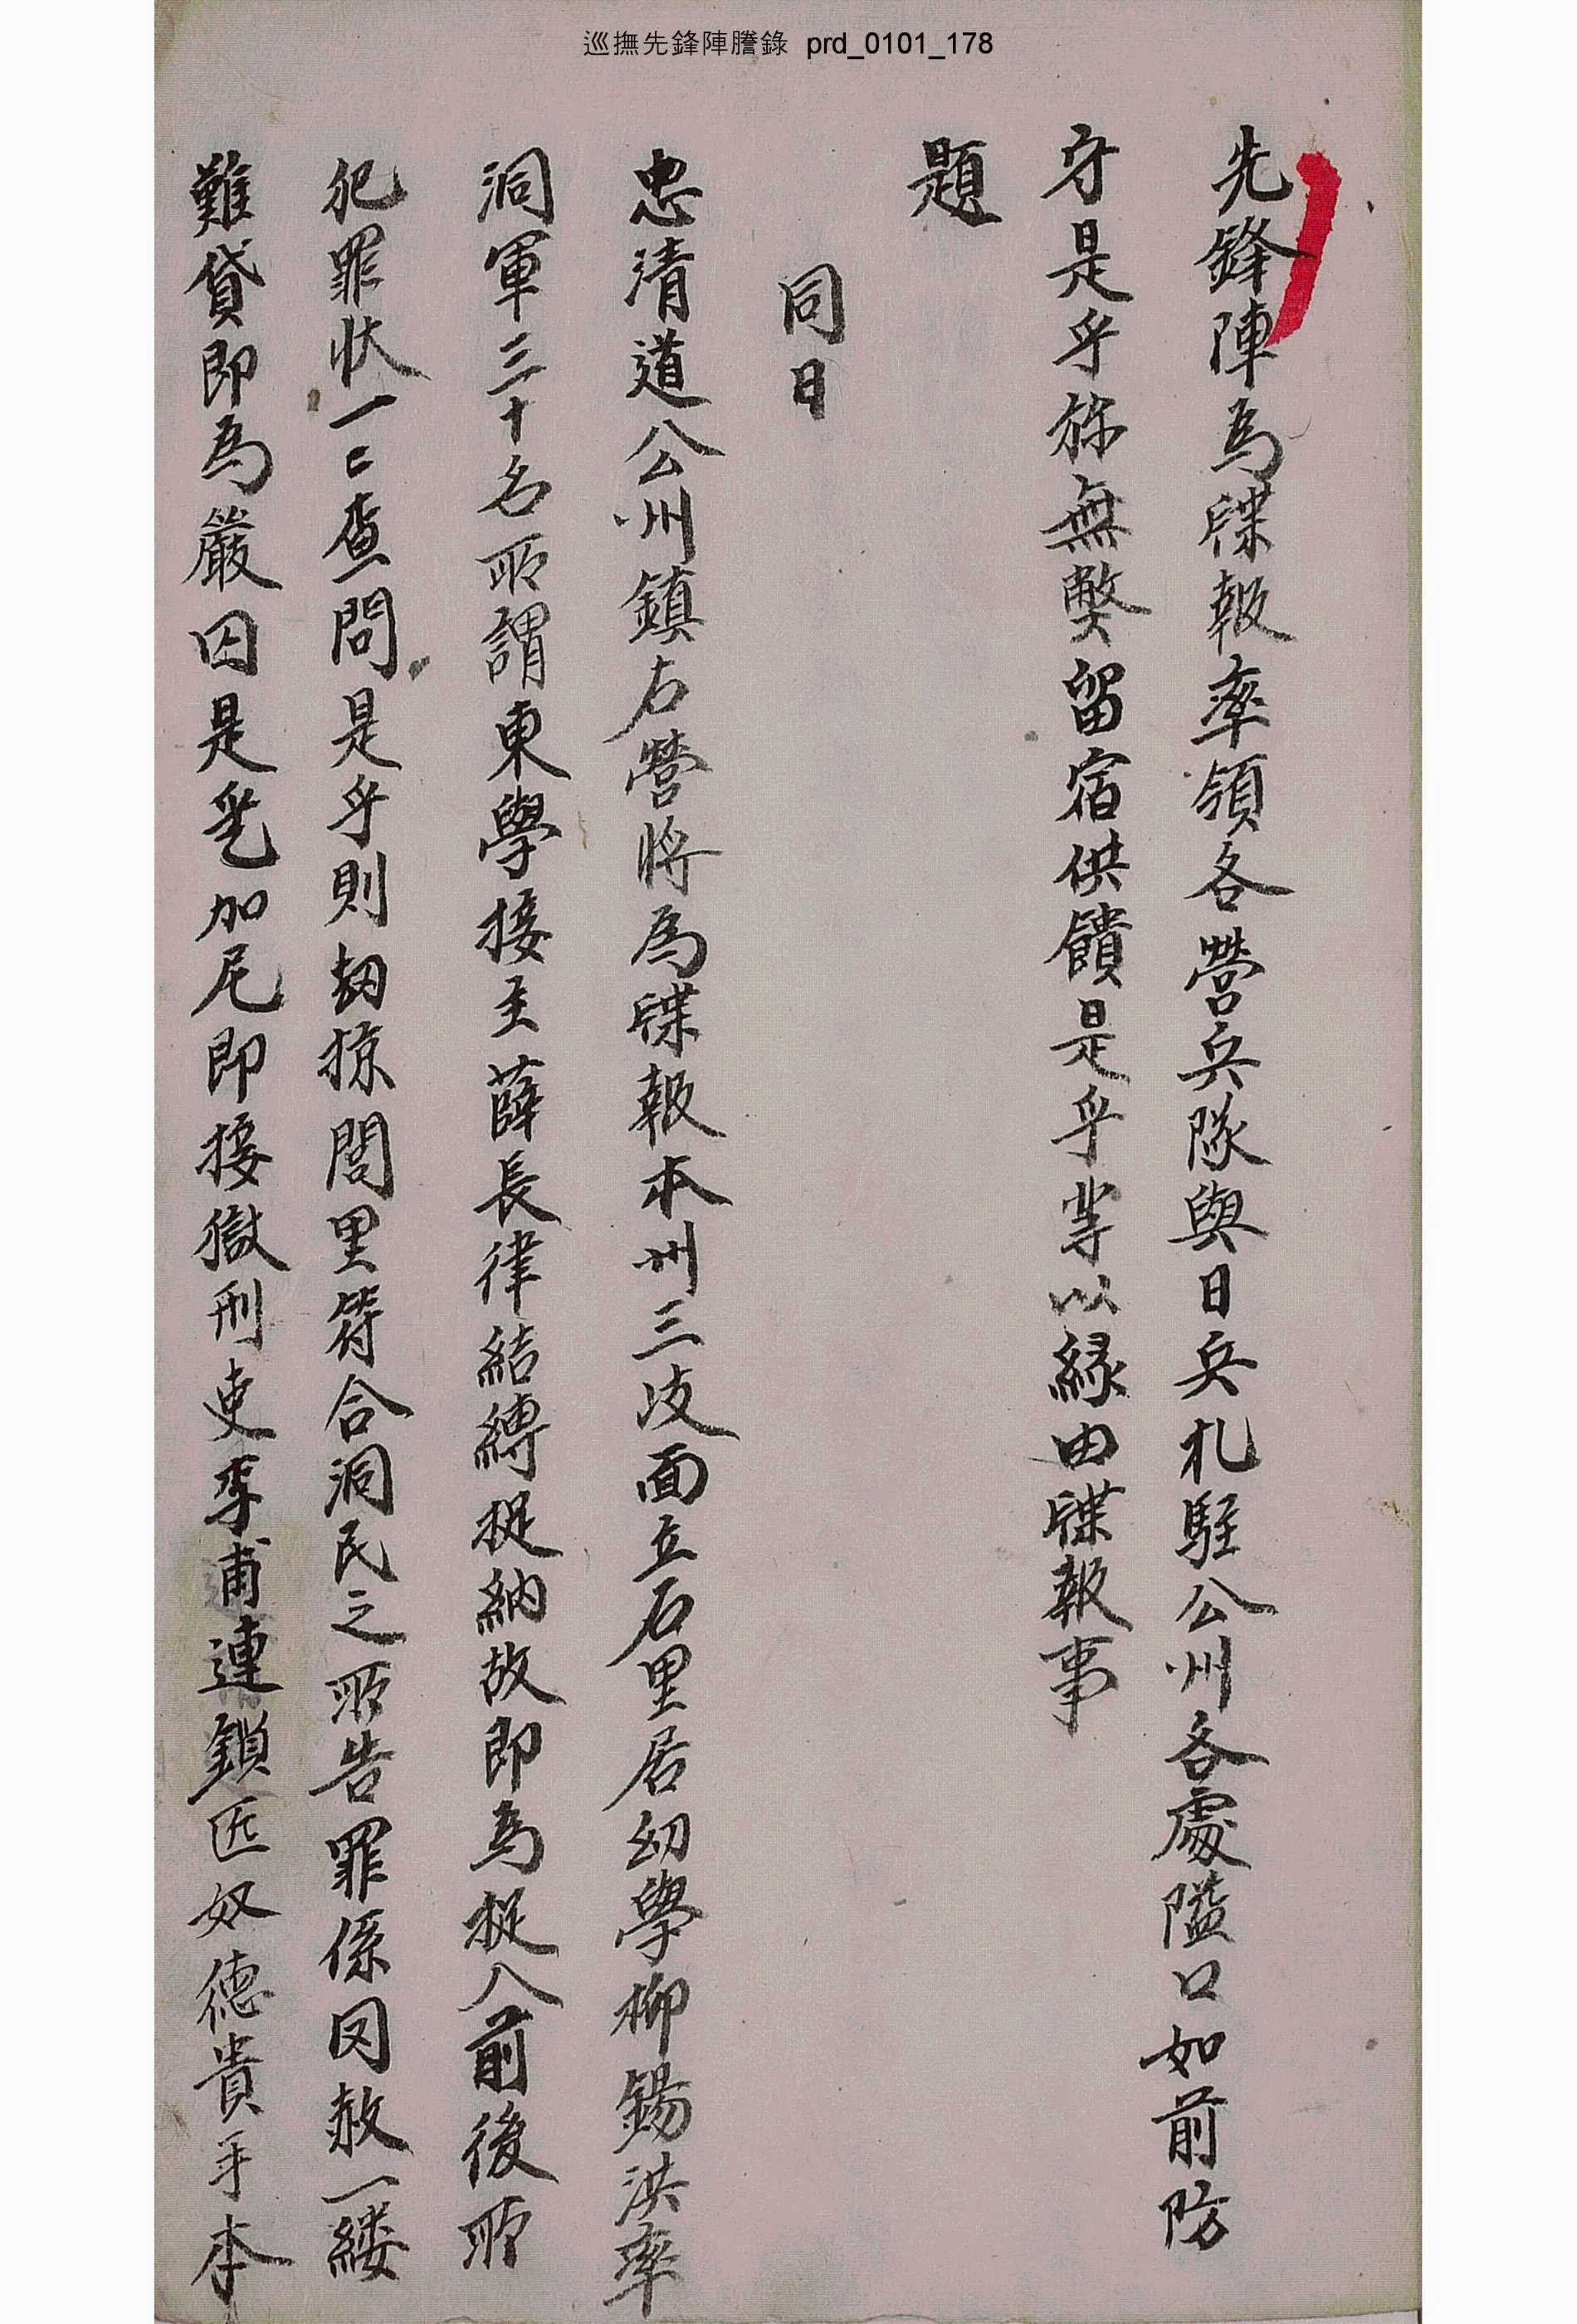 巡撫先鋒陣謄錄 prd_0101_178
先鋒陣爲牒報率領各營兵隊與日兵札駐公州各處隘口如前防
守是乎旀無弊留宿供饋是乎等以緣由牒報事
題
同日
忠清道公州鎮右營將爲牒報本州三岐面立石里居幼學柳錫洪率
洞軍三十名所謂東學接主薛長律結縛捉納故即爲捉入前後所
犯罪狀一一査問是乎則劫掠閭里符合洞民之所告罪係罔赦一縷
難貸即爲嚴囚是乯加尼即接獄刑吏李甫連鎖匠奴德貴手本